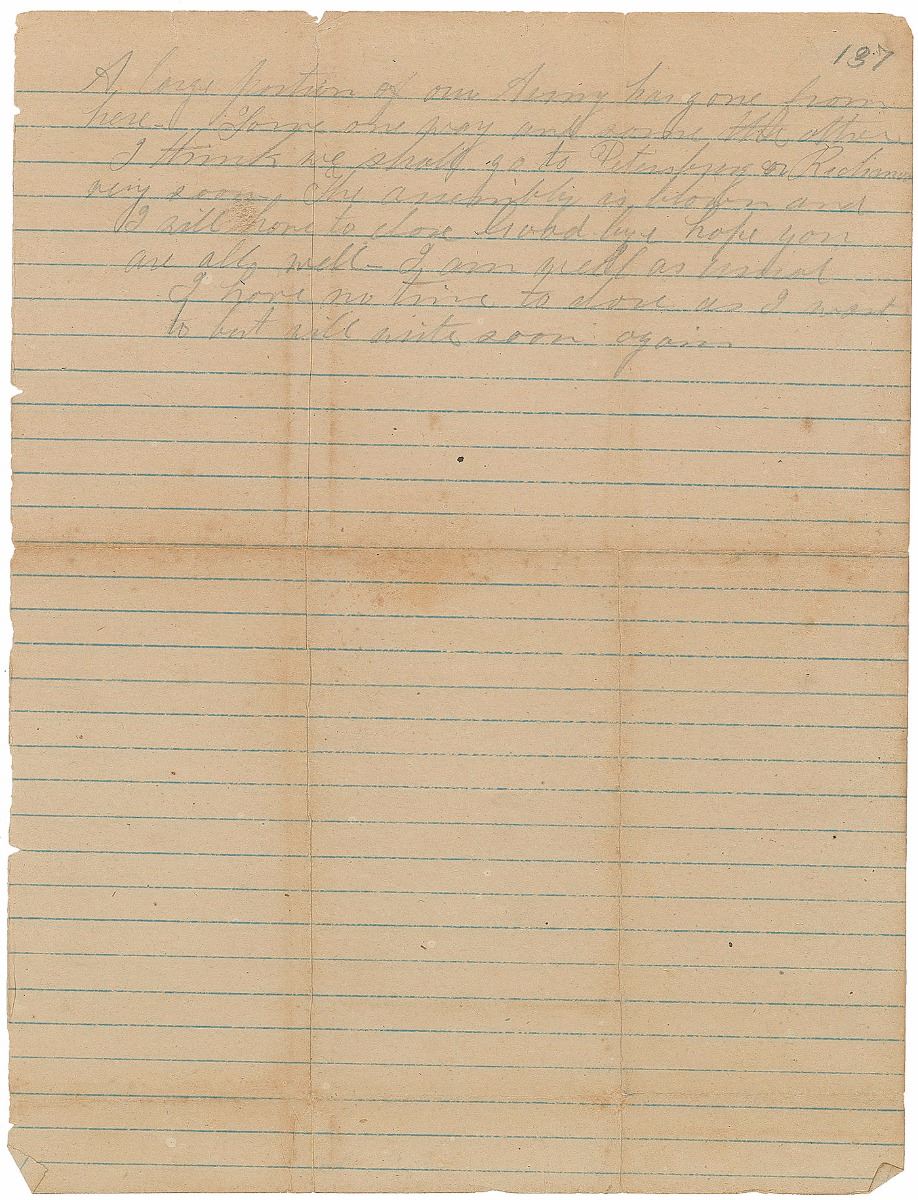 137
A large portion of our Army has gone from
here - Some one way and some the other
I think we shall go to Petersburg or Richmond
very soon. The assembly is blown and
I will have to close Good bye hope you
are all well - I am well as usual
I have no time to close as I want
to but will write soon again